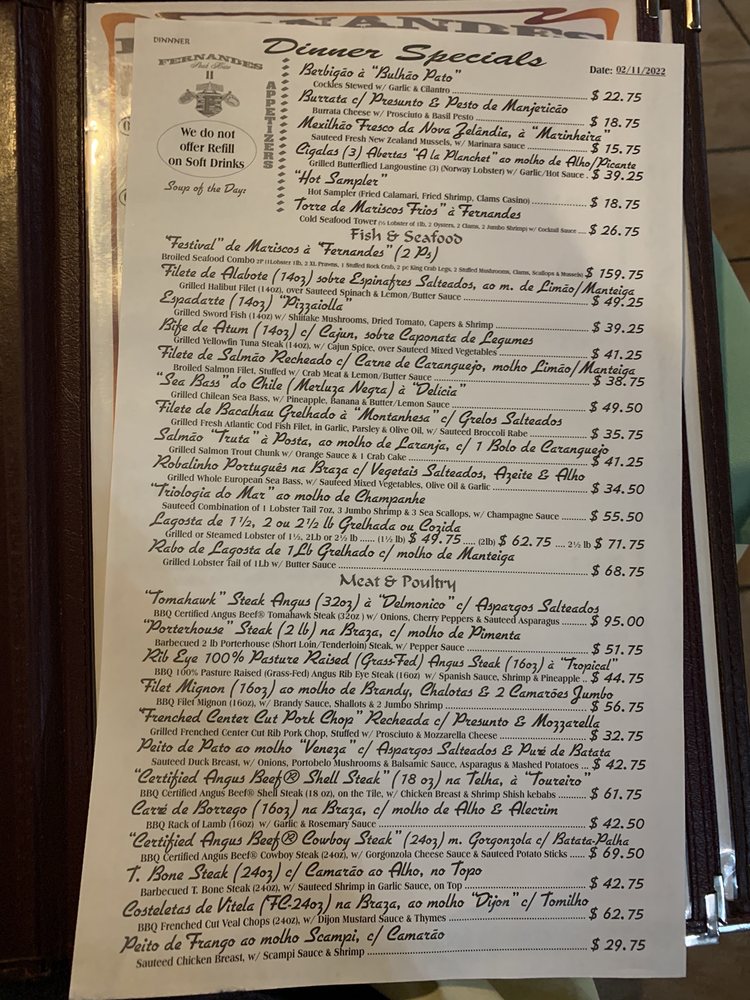 FERNANDES
DINNNER
Dinner Specials
Date: 02/11/2022
FERNANDES
Steak House
II
We do not
offer Refill
on Soft Drinks
Soup of the Day:
APPETIZERS
Berbigão à "Bulhão Pato"
Cockles Stewed w/ Garlic & Cilantro ... $ 22.75
Burrata c/ Presunto & Pesto de Manjericão
Burrata Cheese w/ Prosciuto & Basil Pesto ... $ 18.75
Mexilhão Fresco da Nova Zelândia, à "Marinheira"
Sauteed Fresh New Zealand Mussels, w/ Marinara sauce ... $ 15.75
Cigalas (3) Abertas "A la Planchet" ao molho de Alho/Picante
Grilled Butterflied Langoustine (3) (Norway Lobster) w/ Garlic/Hot Sauce . $ 39.25
"Hot Sampler"
Hot Sampler (Fried Calamari, Fried Shrimp, Clams Casino) ... $ 18.75
Torre de Mariscos Frios" à Fernandes
Cold Seafood Tower (½ Lobster of 1lb, 2 Oysters, 2 Clams, 2 Jumbo Shrimp) w/ Cocktail Sauce ... $ 26.75
Fish & Seafood
"Festival" de Mariscos à "Fernandes" (2 Ps)
Broiled Seafood Combo 2P (1Lobster 1lb, 2 XL Prawns, 1 Stuffed Rock Crab, 2 pc King Crab Legs, 2 Stuffed Mushrooms, Clams, Scallops & Mussels) $ 159.75
Filete de Alabote (14oz) sobre Espinafres Salteados, ao m. de Limão/Manteiga
Grilled Halibut Filet (14oz), over Sauteed Spinach & Lemon/Butter Sauce ... $ 49.25
Espadarte (14oz) "Pizzaiolla"
Grilled Sword Fish (14oz) w/ Shiitake Mushrooms, Dried Tomato, Capers & Shrimp ... $ 39.25
Bife de Atum (14oz) c/ Cajun, sobre Caponata de Legumes
Grilled Yellowfin Tuna Steak (14oz), w/ Cajun Spice, over Sauteed Mixed Vegetables ... $ 41.25
Filete de Salmão Recheado c/ Carne de Caranguejo, molho Limão/Manteiga
Broiled Salmon Filet, Stuffed w/ Crab Meat & Lemon/Butter Sauce ... $ 38.75
"Sea Bass" do Chile (Merluza Negra) à "Delicia"
Grilled Chilean Sea Bass, w/ Pineapple, Banana & Butter/Lemon Sauce ... $ 49.50
Filete de Bacalhau Grelhado à "Montanhesa" c/ Grelos Salteados
Grilled Fresh Atlantic Cod Fish Filet, in Garlic, Parsley & Olive Oil, w/ Sauteed Broccoli Rabe ... $ 35.75
Salmão "Truta" à Posta, ao molho de Laranja, c/ 1 Bolo de Caranguejo
Grilled Salmon Trout Chunk w/ Orange Sauce & 1 Crab Cake ... $ 41.25
Robalinho Português na Braza c/ Vegetais Salteados, Azeite & Alho
Grilled Whole European Sea Bass, w/ Sauteed Mixed Vegetables, Olive Oil & Garlic ... $ 34.50
"Triologia do Mar" ao molho de Champanhe
Sauteed Combination of 1 Lobster Tail 7oz, 3 Jumbo Shrimp & 3 Sea Scallops, w/ Champagne Sauce ... $ 55.50
Lagosta de 1½, 2 ou 2½ lb Grelhada ou Cozida
Grilled or Steamed Lobster of 1½, 2Lb or 2½ lb ...... (1½ lb) $ 49.75 .... (2lb) $ 62.75 .... 2½ lb $ 71.75
Rabo de Lagosta de 1Lb Grelhado c/ molho de Manteiga
Grilled Lobster Tail of 1Lb w/ Butter Sauce ... $ 68.75
Meat & Poultry
"Tomahawk" Steak Angus (32oz) à "Delmonico" c/ Aspargos Salteados
BBQ Certified Angus Beef® Tomahawk Steak (32oz) w/ Onions, Cherry Peppers & Sauteed Asparagus ... $ 95.00
"Porterhouse" Steak (2 lb) na Braza, c/ molho de Pimenta
Barbecued 2 lb Porterhouse (Short Loin/Tenderloin) Steak, w/ Pepper Sauce ... $ 51.75
Rib Eye 100% Pasture Raised (Grass-Fed) Angus Steak (16oz) à "Tropical"
BBQ 100% Pasture Raised (Grass-Fed) Angus Rib Eye Steak (16oz) w/ Spanish Sauce, Shrimp & Pineapple .. $ 44.75
Filet Mignon (16oz) ao molho de Brandy, Chalotas & 2 Camarões Jumbo
BBQ Filet Mignon (16oz), w/ Brandy Sauce, Shallots & 2 Jumbo Shrimp ... $ 56.75
"Frenched Center Cut Pork Chop" Recheada c/ Presunto & Mozzarella
Grilled Frenched Center Cut Rib Pork Chop, Stuffed w/ Prosciuto & Mozzarella Cheese ... $ 32.75
Peito de Pato ao molho "Veneza" c/ Aspargos Salteados & Puré de Batata
Sauteed Duck Breast, w/ Onions, Portobelo Mushrooms & Balsamic Sauce, Asparagus & Mashed Potatoes ... $ 42.75
"Certified Angus Beef® Shell Steak" (18 oz) na Telha, à "Toureiro"
BBQ Certified Angus Beef® Shell Steak (18 oz), on the Tile, w/ Chicken Breast & Shrimp Shish kebabs ... $ 61.75
Carré de Borrego (16oz) na Braza, c/ molho de Alho & Alecrim
BBQ Rack of Lamb (16oz) w/ Garlic & Rosemary Sauce ... $ 42.50
"Certified Angus Beef® Cowboy Steak" (24oz) m. Gorgonzola c/ Batata-Palha
BBQ Certified Angus Beef® Cowboy Steak (24oz), w/ Gorgonzola Cheese Sauce & Sauteed Potato Sticks ..... $ 69.50
T. Bone Steak (24oz) c/ Camarão ao Alho, no Topo
Barbecued T. Bone Steak (24oz), w/ Sauteed Shrimp in Garlic Sauce, on Top ... $ 42.75
Costeletas de Vitela (FC-24oz) na Braza, ao molho "Dijon" c/ Tomilho
BBQ Frenched Cut Veal Chops (24oz), w/ Dijon Mustard Sauce & Thymes ... $ 62.75
Peito de Frango ao molho Scampi, c/ Camarão
Sauteed Chicken Breast, w/ Scampi Sauce & Shrimp ... $ 29.75